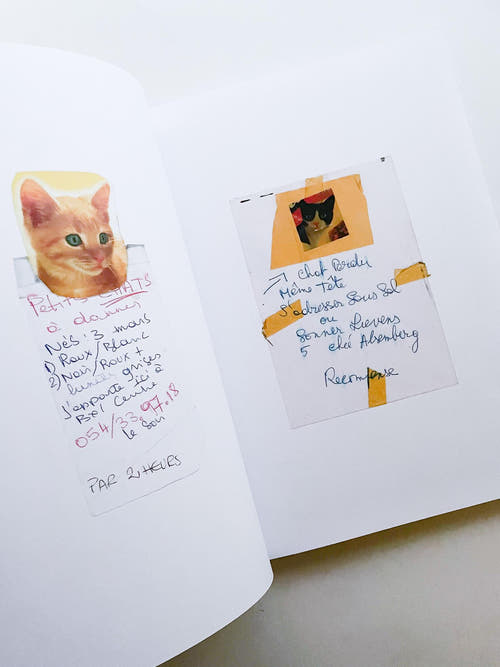 Petits CHATS
à donner
Nés: 3 mois
1) Roux/Blanc
2) Noir/Roux +
grises
J'apporte ici à
BXL Centre
054/33.97.18
le soir
PAR 2 HEURS
Chat Perdu
Même Tête
S'adresser Sous Sol
ou
Sonner Lievens
5 chée Alsemberg
Recompense